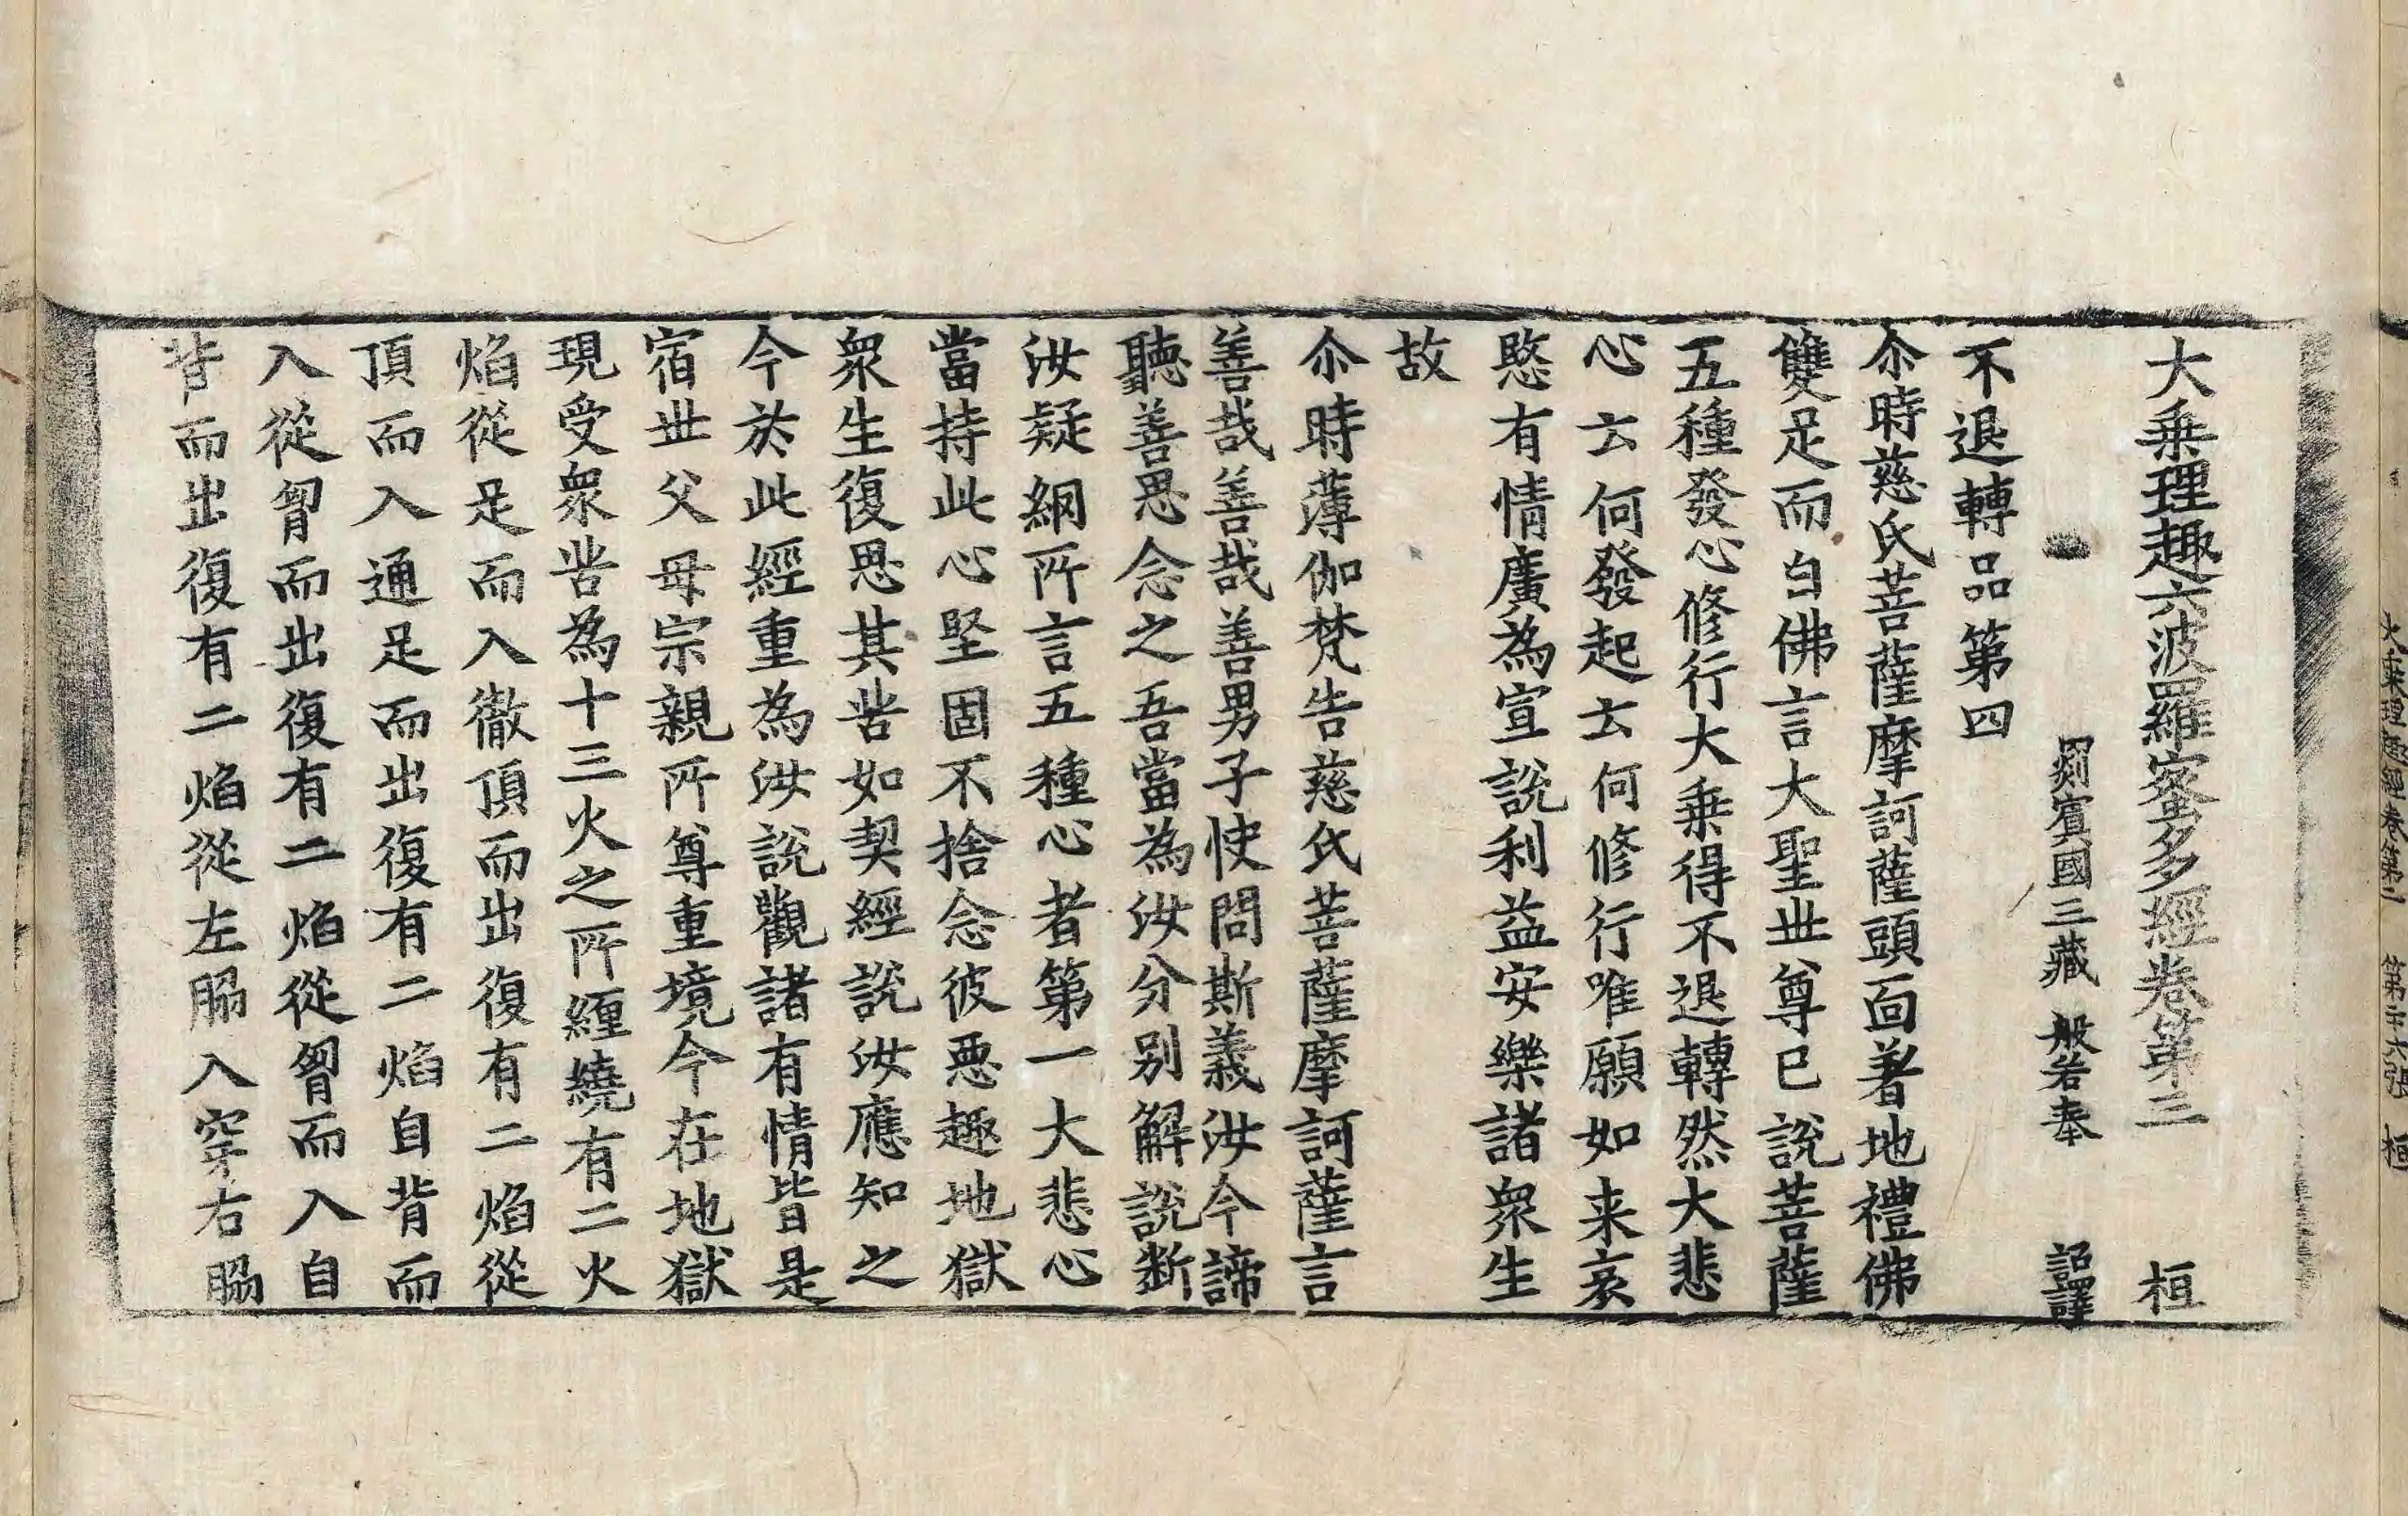 大乗理趣六波羅蜜多經卷第三 桓
罽賓國三藏 般若奉 詔譯
不退轉品第四
尒時慈氏菩薩摩訶薩頭面著地禮佛
雙足而白佛言大聖丗尊已說菩薩
五種發心修行大乗得不退轉然大悲
心云何發起云何修行唯願如来哀
愍有情廣為宣說利益安樂諸衆生
故
尒時薄伽梵告慈氏菩薩摩訶薩言
善哉善哉善男子快問斯義汝今諦
聽善思念之吾當為汝分別解說斷
汝疑網所言五種心者第一大悲心
當持此心堅固不捨念彼惡趣地獄
衆生復思其苦如契經說汝應知之
今於此經重為汝說觀諸有情皆是
宿丗父母宗親所尊重境今在地獄
現受衆苦為十三火之所纏繞有二火
焰從足而入徹頂而出復有二焰從
頂而入通足而出復有二焰自背而
入從胷而出復有二焰從胷而入自
背而出復有二焰從左脇入穿右脇